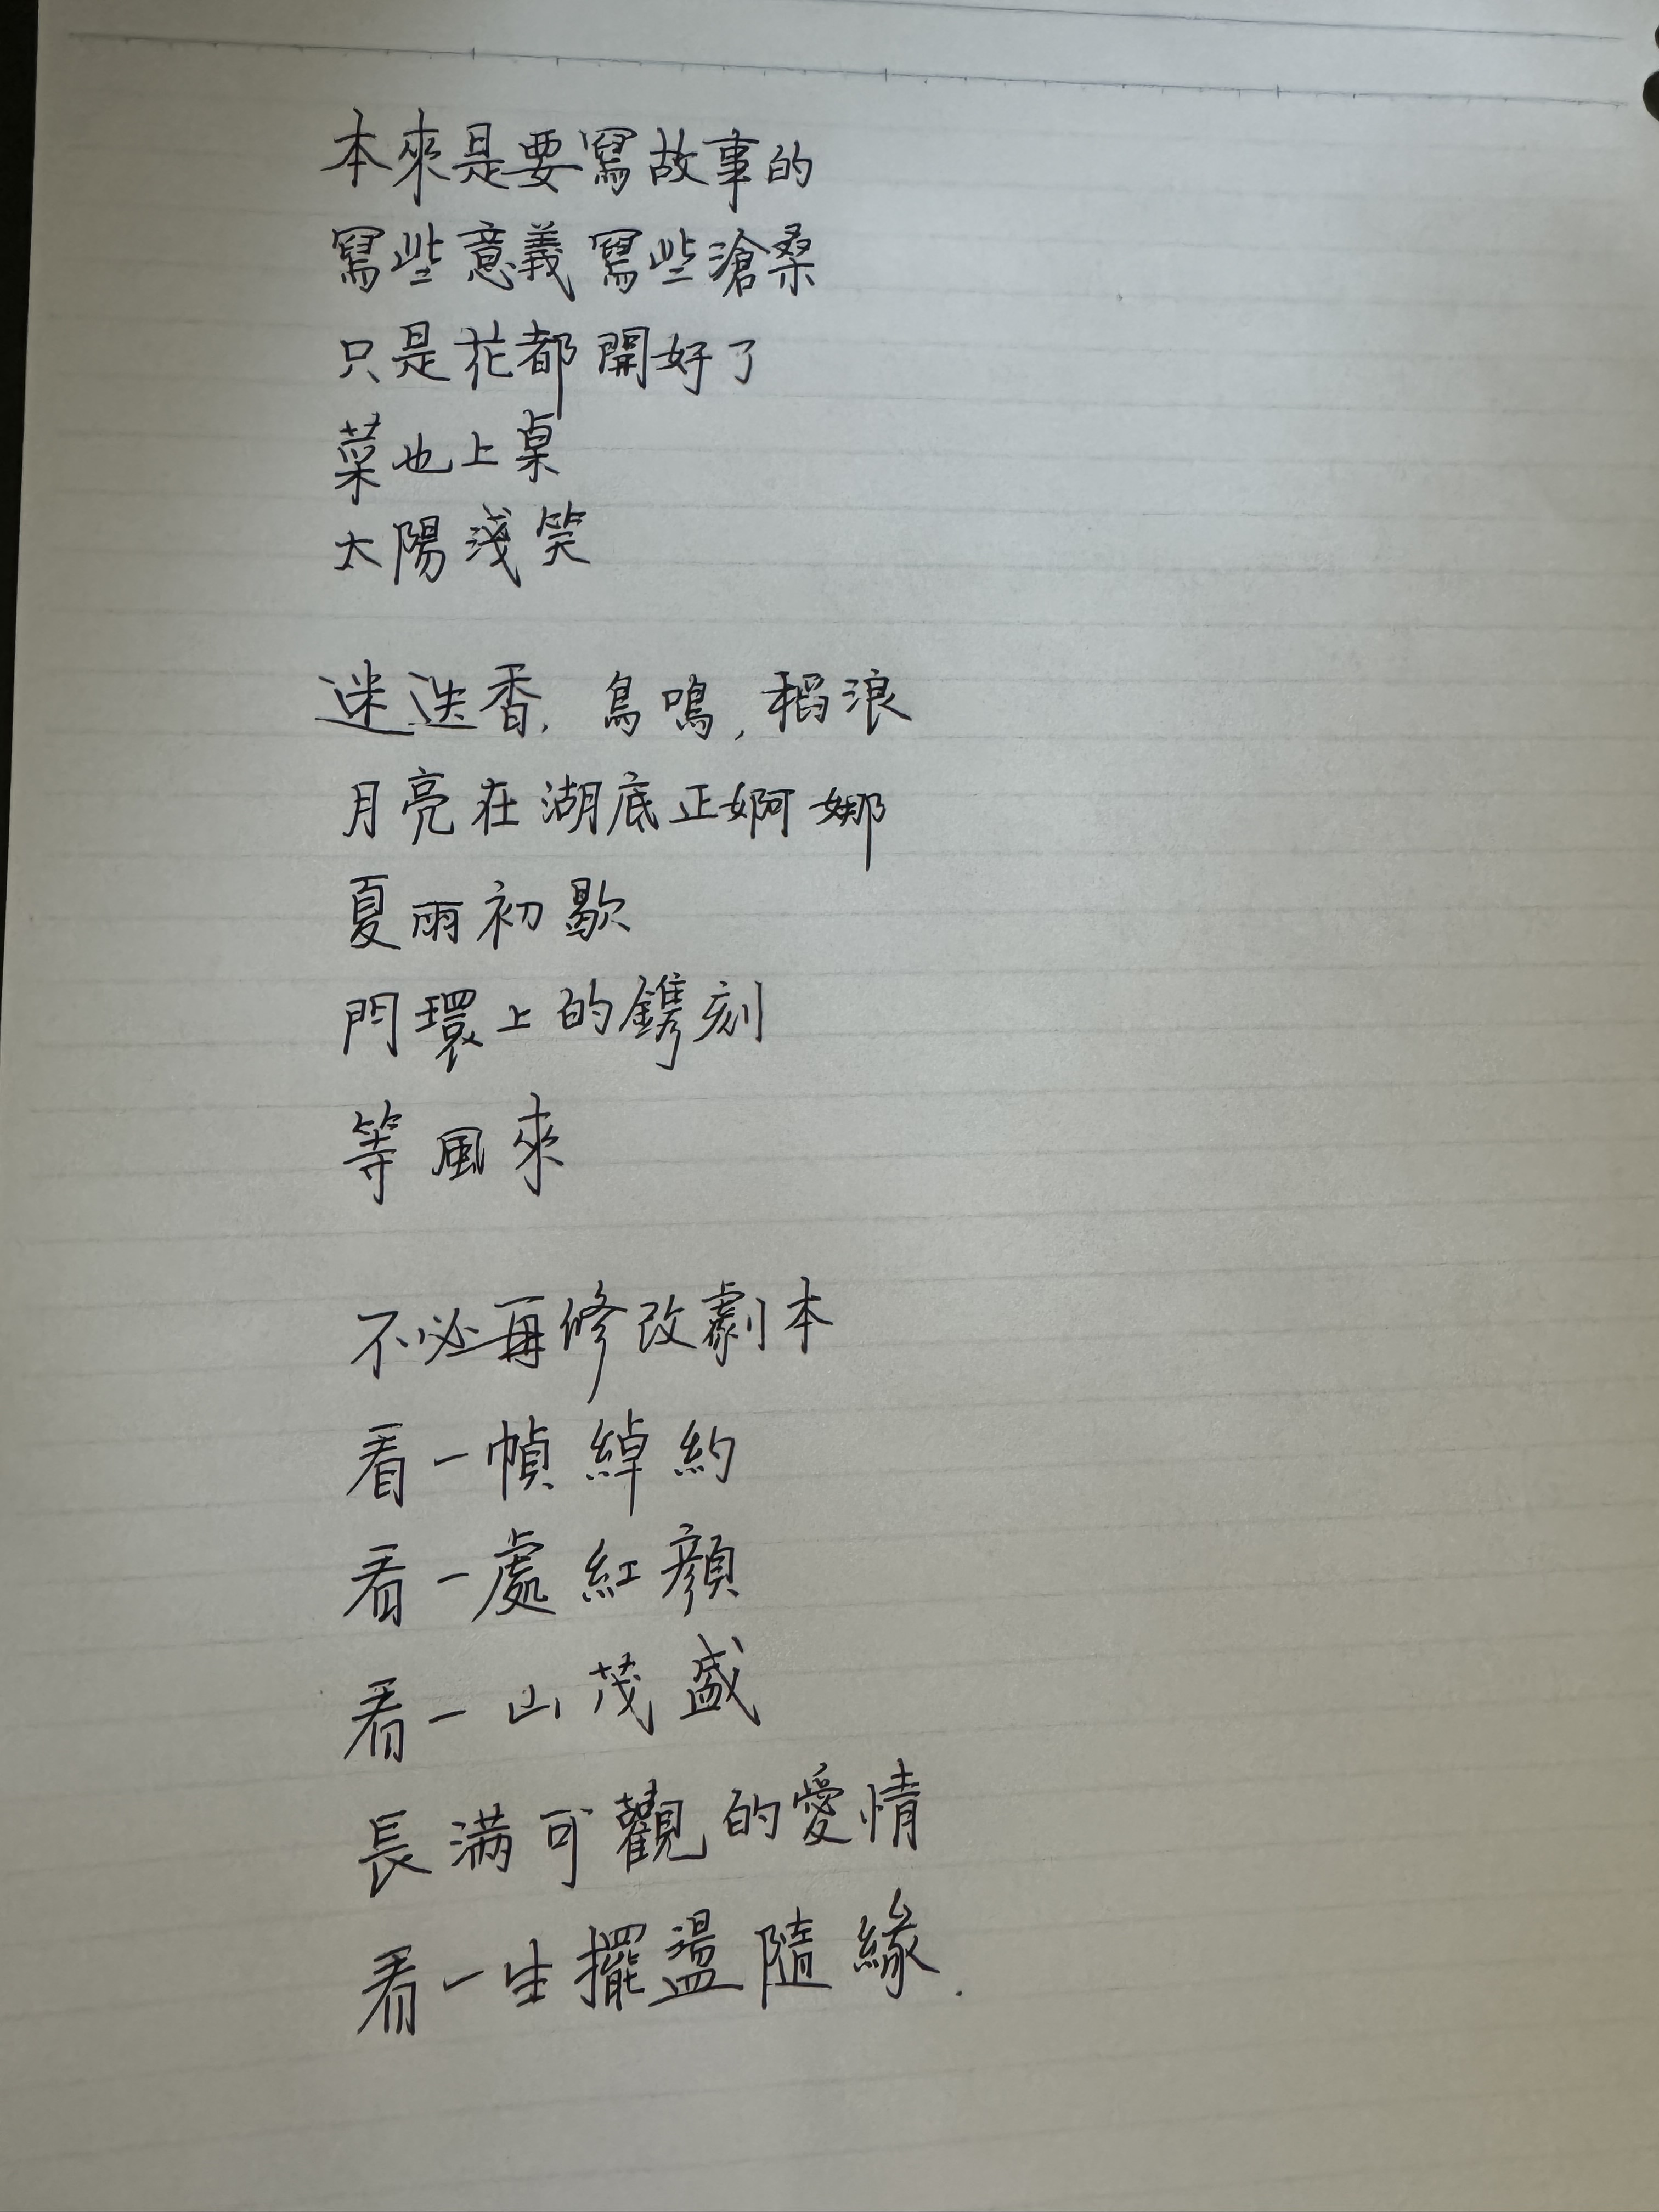 本來是要寫故事的
寫些意義 寫些滄桑
只是花都開好了
菜也上桌
太陽淺笑
迷迭香, 鳥鳴, 稻浪
月亮在湖底正婀娜
夏雨初歇
門環上的鐫刻
等風來
不必再修改劇本
看一幀綽約
看一處紅顏
看一山茂盛
長滿可觀的愛情
看一生擺盪隨緣.